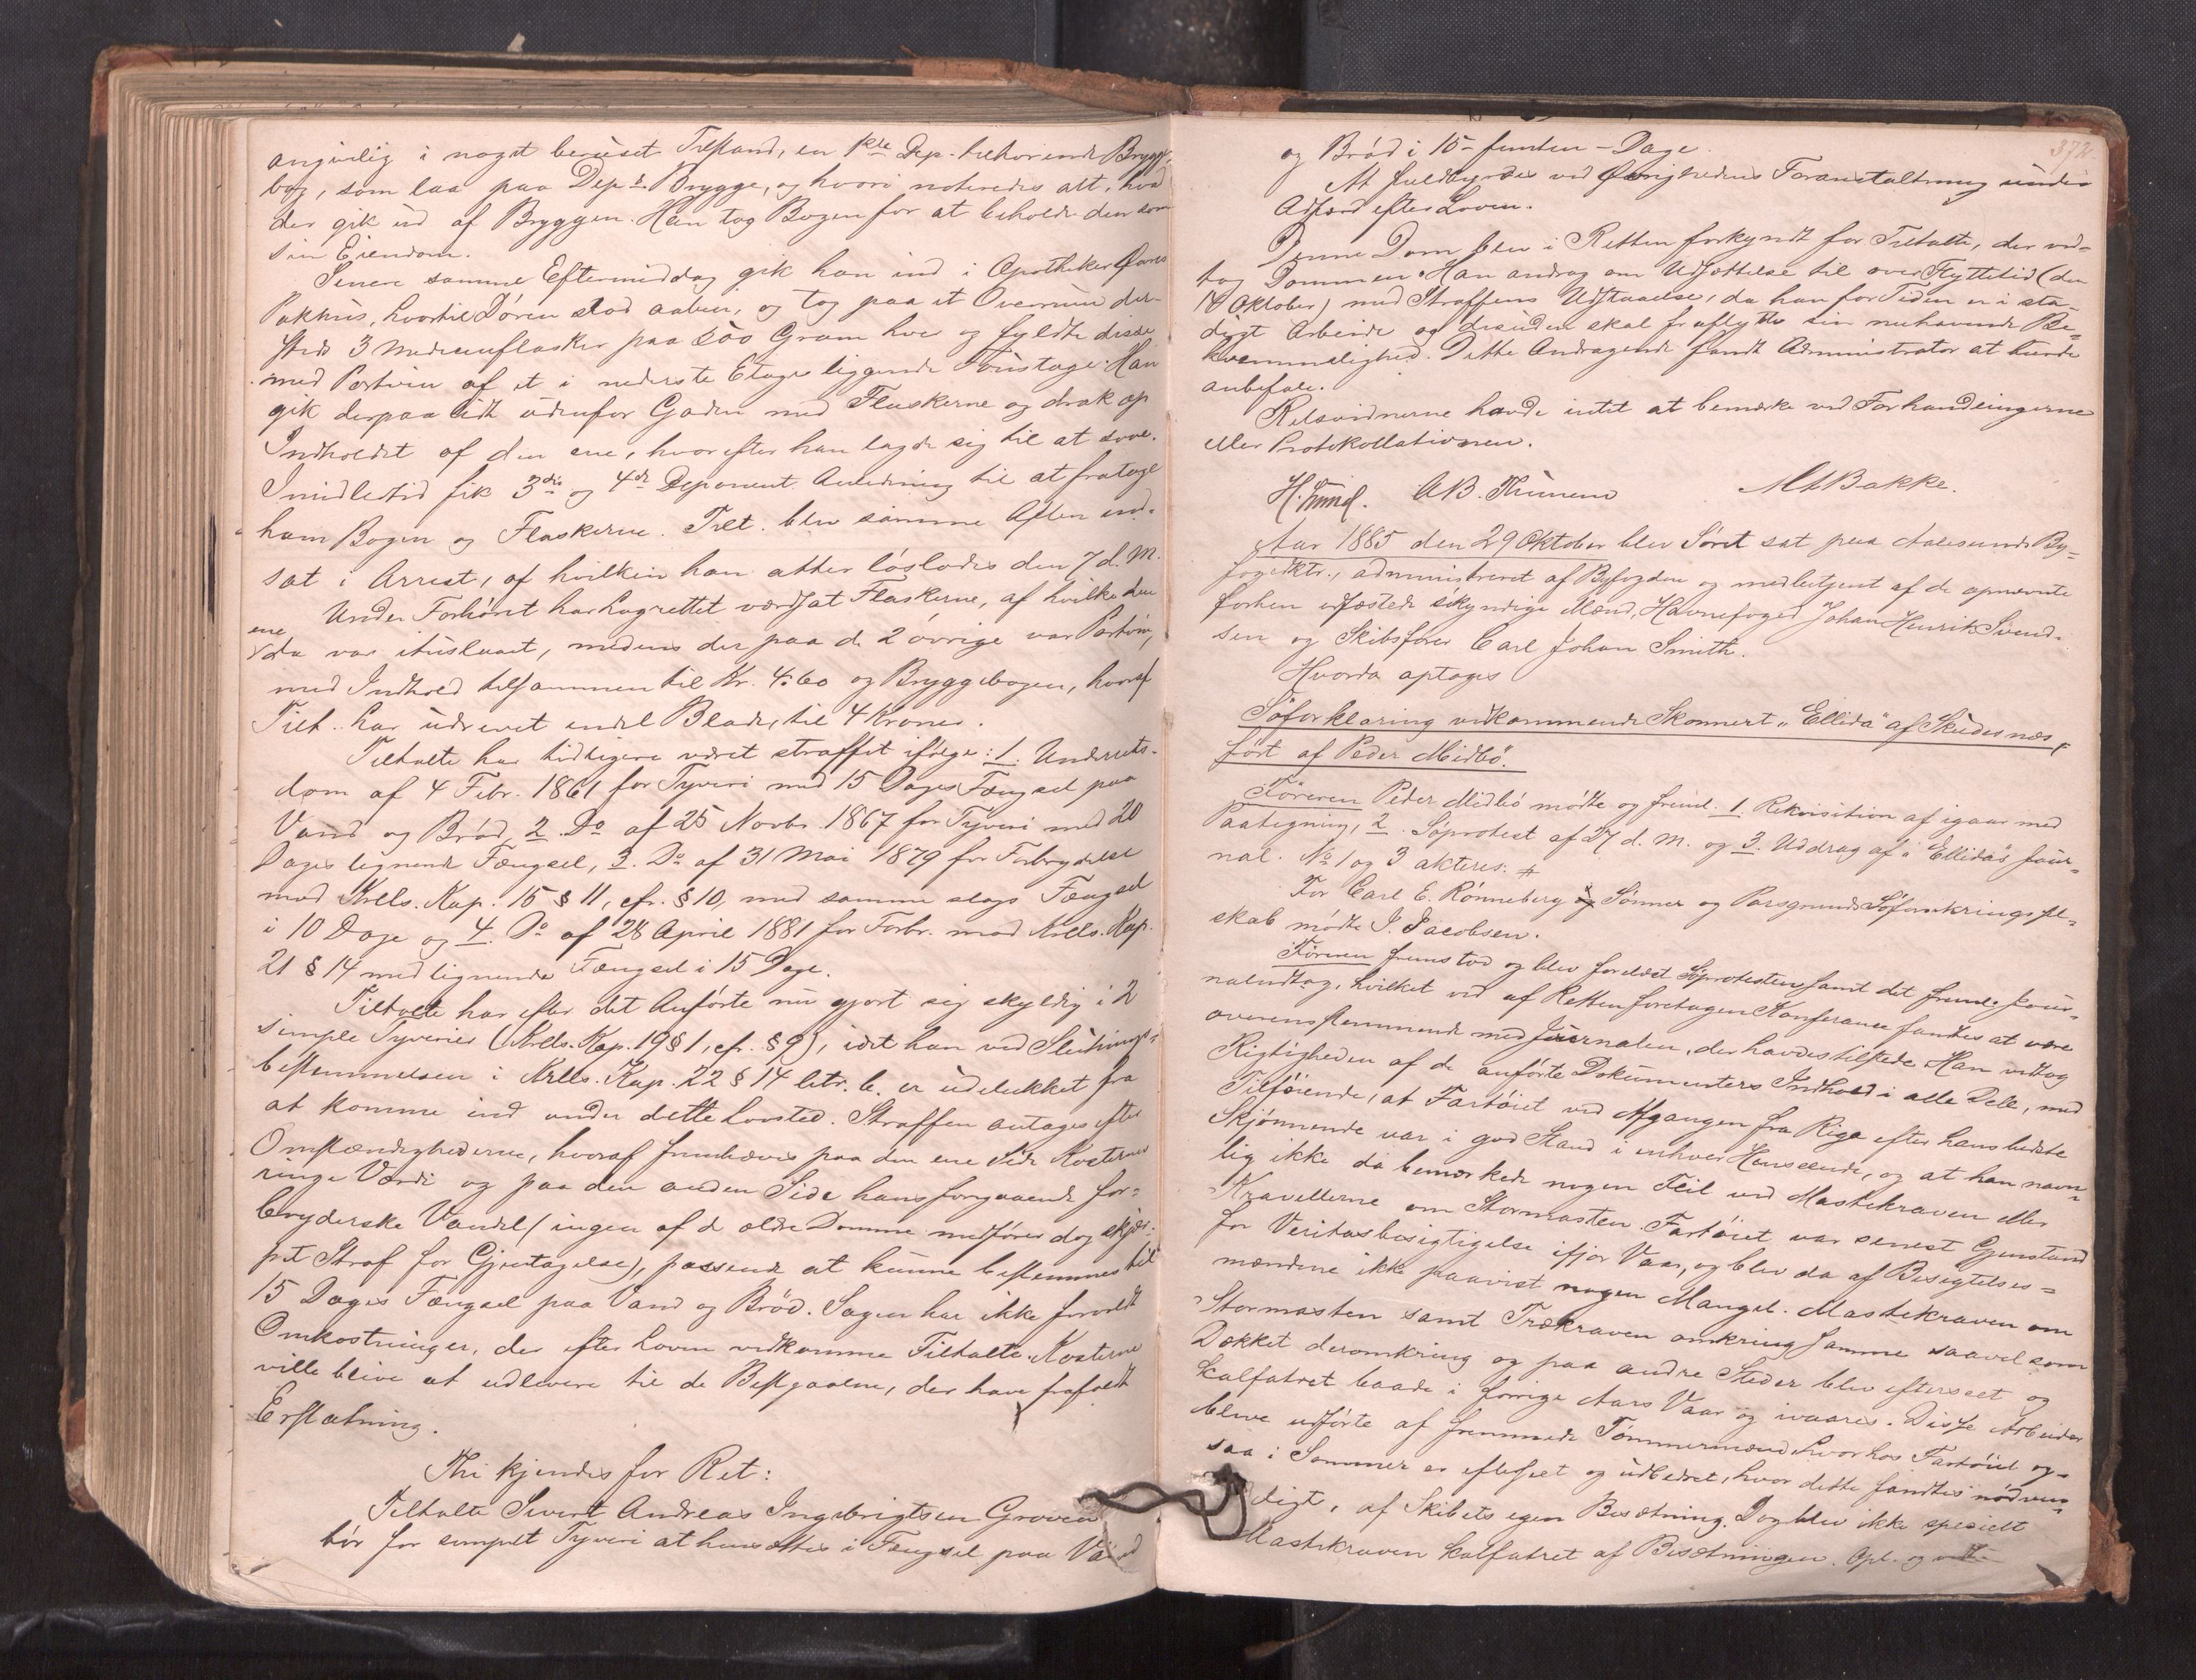 angivelig i noget beruset Tilstand, en 1ste Dep. tilhørende Brygge-
bog, som laa paa Dep s. Brygge, og hvori noteredes alt, hvad
der gik ud af Bryggen. Han tog Bogen for at beholde den som
sin Eiendom.
Senere samme Eftermiddag gik han ind i Apotheker Øwres
Pakhus, hvortil Døren stod aaben, og tog paa et Overrum der-
steds 3 Medicinflasker paa 500 Gram hver og fyldte disse
med Portvin af et i nederste Etage liggende Foustage. Han
gik derpaa lidt udenfor Gaden med Flaskerne og drak op
Indholdet af den ene, hvorefter han lagde sig til at sove.
Imidlertid fik 3die og 4de Deponent Anledning til at fratage
ham Bogen og Flaskerne. Tilt. blev samme Aften ind-
sat i Arrest, af hvilken han atter løslodes den 7 d. M.
Under Forhøret har Lagrettet værdsat Flaskerne, af hvilke den
ene da var ituslaaet, medens der paa de 2 øvrige var Portvin,
med Indhold tilsammen til Kr. 4:60 og Bryggebogen, hvoraf
Tilt. har udrevet endel Blade, til 4 Kroner.
Tiltalte har tidligere været straffet ifølge: 1. Underrets-
dom af 4 Febr. 1861 for Tyveri med 15 Dages Fængsel paa
Vand og Brød, 2. Do af 25 Novbr. 1867 for Tyveri med 20
Dages lignende Fængsel, 3. Do af 31 Mai 1879 for Forbrydelse
mod Krlls. Kap. 15 § 11, cfr. § 10, med samme slags Fængsel
i 10 Dage og 4. Do af 28 April 1881 for Forbr. mod Krlls. Kap.
21 § 14 med lignende Fængsel i 15 Dage.
Tiltalte har efter det Anførte nu gjort sig skyldig i 2
simple Tyverier (Krlls. Kap. 19 § 1, cfr. § 9), idet han ved Slutnings-
bestemmelsen i Krlls. Kap. 22 § 14 litr. b. er udelukket fra
at komme ind under dette Lovsted. Straffen antages efter
Omstændighederne, hvoraf fremhæves paa den ene Side Kosternes
ringe Værdi og paa den anden Side hans foregaaende for-
bryderske Vandel (ingen af de ældre Domme medfører dog skjær-
pet Straf for Gjentagelse), passende at kunne bestemmes til
15 Dages Fængsel paa Vand og Brød. Sagen har ikke forvoldt
Omkostninger, der efter Loven vedkomme Tiltalte. Kosterne
ville blive at udlevere til de Bestjaalne, der have frafaldt
Erstatning.
Thi kjendes for Ret:
Tiltalte Sivert Andreas Ingebrigtsen Groven
bør for simpelt Tyveri at hensættes i Fængsel paa Vand
372.
og Brød i 15 - femten - Dage.
At fuldbyrdes ved Øvrighedens Foranstaltning under
Adfærd efter Loven.
Denne Dom blev i Retten forkyndt for Tiltalte, der ved-
tog Dommen. Han androg om Udsættelse til over Flyttetid (den
14 Oktober) med Straffens Udstaaelse, da han for Tiden er i sta-
digt Arbeide og desuden skal fraflytte sin nuhavende Be-
kvemmelighed. Dette Andragende fandt Administrator at kunde
anbefale.
Retsvidnerne havde intet at bemærke ved Forhandlingerne
eller Protokollationen.
AB. Thunem M Bakke.
Aar 1885 den 29 Oktober blev Søret sat paa Aalesunds By-
fogedktr., administreret af Byfogden og medbetjent af de opnævnte
forhen edfæstede søkyndige Mænd, Havnefoged Johan Henrik Svend-
sen og Skibsfører Carl Johan Smith.
Hvorda optoges
Søforklaring vedkommende Skonnert „Ellida“ af Skudesnæs,
ført af Peder Midbø.
Føreren Peder Midbø mødte og freml. 1. Rekvisition af igaar med
Paategning, 2. Søprotest af 27 d. M. og 3. Uddrag af „Ellida“s Jour-
nal. No 1 og 3 akteres: #
For Carl E. Rønneberg & Sønner og Porsgrunds Søforsikringssel-
skab mødte J. Jacobsen.
Føreren fremstod og blev forelæst Søprotesten samt det freml. Jour-
naludtog, hvilket ved af Retten foretagen Konferance fandtes at være
overensstemmende med Journalen, der havdes tilstede. Han vedtog
Rigtigheden af de anførte Dokumenters Indhold i alle Dele, med
Tilføiende, at Fartøiet ved Afgangen fra Riga efter hans bedste
Skjønnende var i god Stand i enhver Henseende, og at han navn-
lig ikke da bemærkede nogen Feil ved Mastekraven eller
Kravellerne om Stormasten. Fartøiet var senest Gjenstand
for Veritasbesigtigelse ifjor Vaar, og blev da af Besigtelses-
mændene ikke paavist nogen Mangel. Mastekraven om
Stormasten samt Trækraven omkring samme saavel som
Dækket deromkring og paa andre Steder blev efterseet og
kalfatret baade i forrige Aars Vaar og ivaares. Disse Arbeider
bleve udførte af fremmede Tømmermænd hvorhos Fartøiet og-
saa i Sommer er efterseet og udbedret, hvor dette fandtes nødven-
digt, af Skibets egen Besætning. Dog blev ikke specielt
Mastekraven kalfatret af Besætningen. Opl. og vedt.